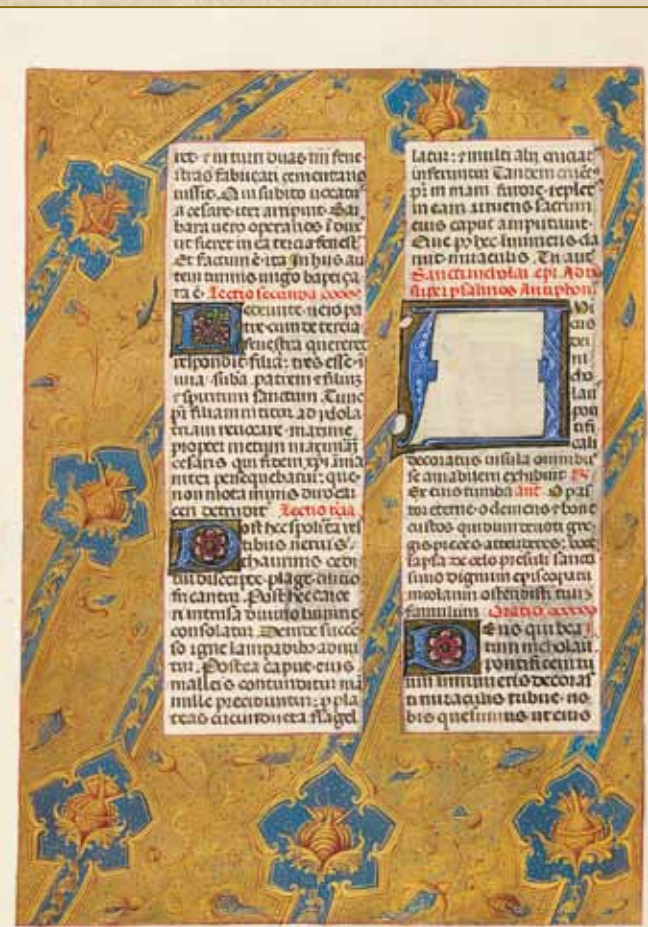 ret · et in turri duas tm fene-
stras fabricari cementario
iussit. Qui subito uocatus
a cesare iter arripuit. Bar
bara uero operarios
ut fieret in ea tercia fenest
Et factum ē ita. In huis au
tem turris uirgo baptiça
ta ē. Lectio secunda
Redeunte uero pa
tre cum de tercia
fenestra quereret
respondit filia: tres esse
una suba patrem et filium
et spiritum sanctum. Tunc
pr filiam nititur ad ydola
triam reuocare · maxime
propter metum
cesaris qui fidem xpi
niter persequebatur: que
non mota minis duro car
ceri detruditur. Lectio
Post hec spoliata ues
tibus neruis
thaurinis cedi
tur
fricantur. Post hec carce
ri intrusa diuino lumine
consolatur. Deinde succe
so igne lampadibo aduri
tur. Postea caput eius
malleis contunditur
mille preciduntur: p pla
teas circumducta flagel
latur: et multi alii cruciatus
inferuntur. Tandem
pr in mam furore replet
in eam irruens sacrum
eius caput amputauit.
Que py hec luminens cla
ruit miraculis. Tu aut
Sancti nicholai epi. Ad
super psalmos Antiphon
N Bi
cus
dei
ni
cho
laus
pon
tifi
cali
decoratus insula omnibus
se amabilem exhibuit
Ex eius tumba añt. O pas
tor eterne · o clemens et bone
custos qui dum deuoti gre
gis preces attenderes: uoce
lapsa de celo presuli sancti
simo dignum episcopatu
nicolaum ostendisti tuis
famulum. Oratio
Deus qui bea
tum nicholaum
pontificem tu
um innumeris decoras
ti miraculis tribue · no
bis quesumus ut eius